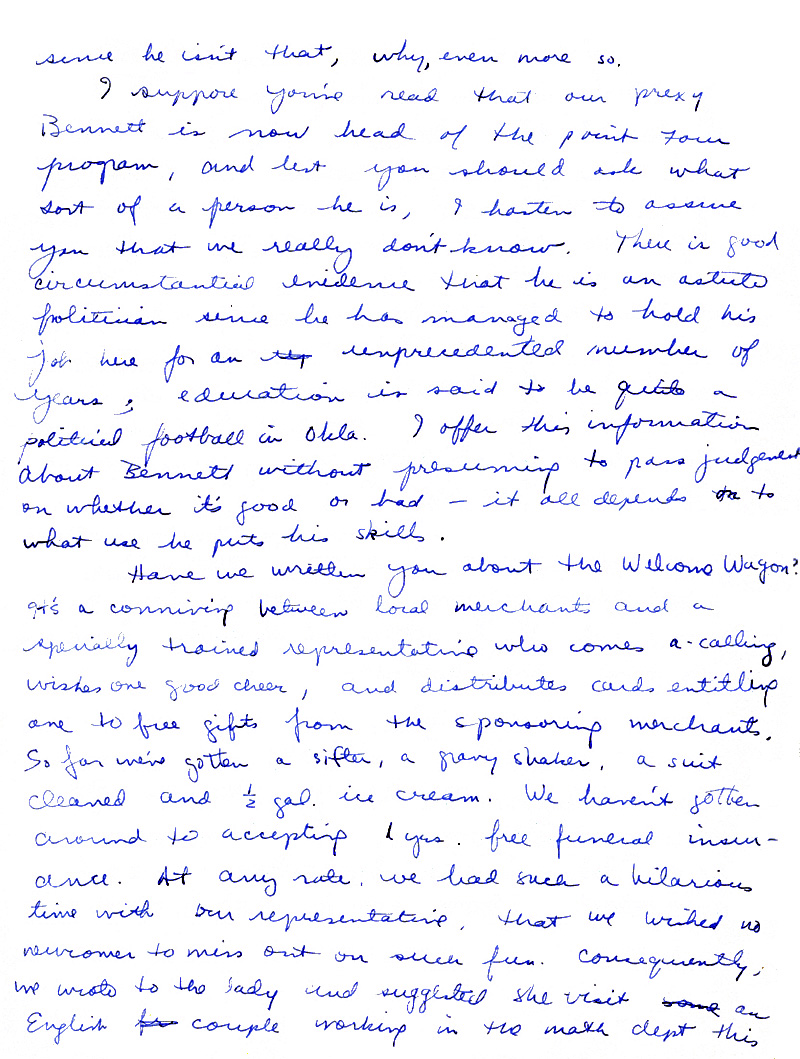 since he isn't that, why, even more so.
I suppose you've read that our prexy
Bennett is now head of the point four
program, and lest you should ask what
sort of a person he is, I hasten to assure
you that we really don't know. There is good
circumstantial evidence that he is an astute
politician since he has managed to hold his
job here for an unprecedented number of
years; education is said to be quite a
political football in Okla. I offer this information
about Bennett without presuming to pass judgement
on whether it's good or bad – it all depends to
what use he puts his skills.
Have we written you about the Welcome Wagon?
It's a conniving between local merchants and a
specially trained representative who comes a-calling,
wishes one good cheer, and distributes cards entitling
one to free gifts from the sponsoring merchants.
So far we've gotten a sifter, a gravy shaker, a suit
cleaned and ½ gal. ice cream. We haven't gotten
around to accepting 1 yrs. free funeral insur-
ance. At any rate, we had such a hilarious
time with our representative, that we wished no
newcomer to miss out on such fun. Consequently,
we wrote to the lady and suggested she visit some an
English for couple working in the math dept this